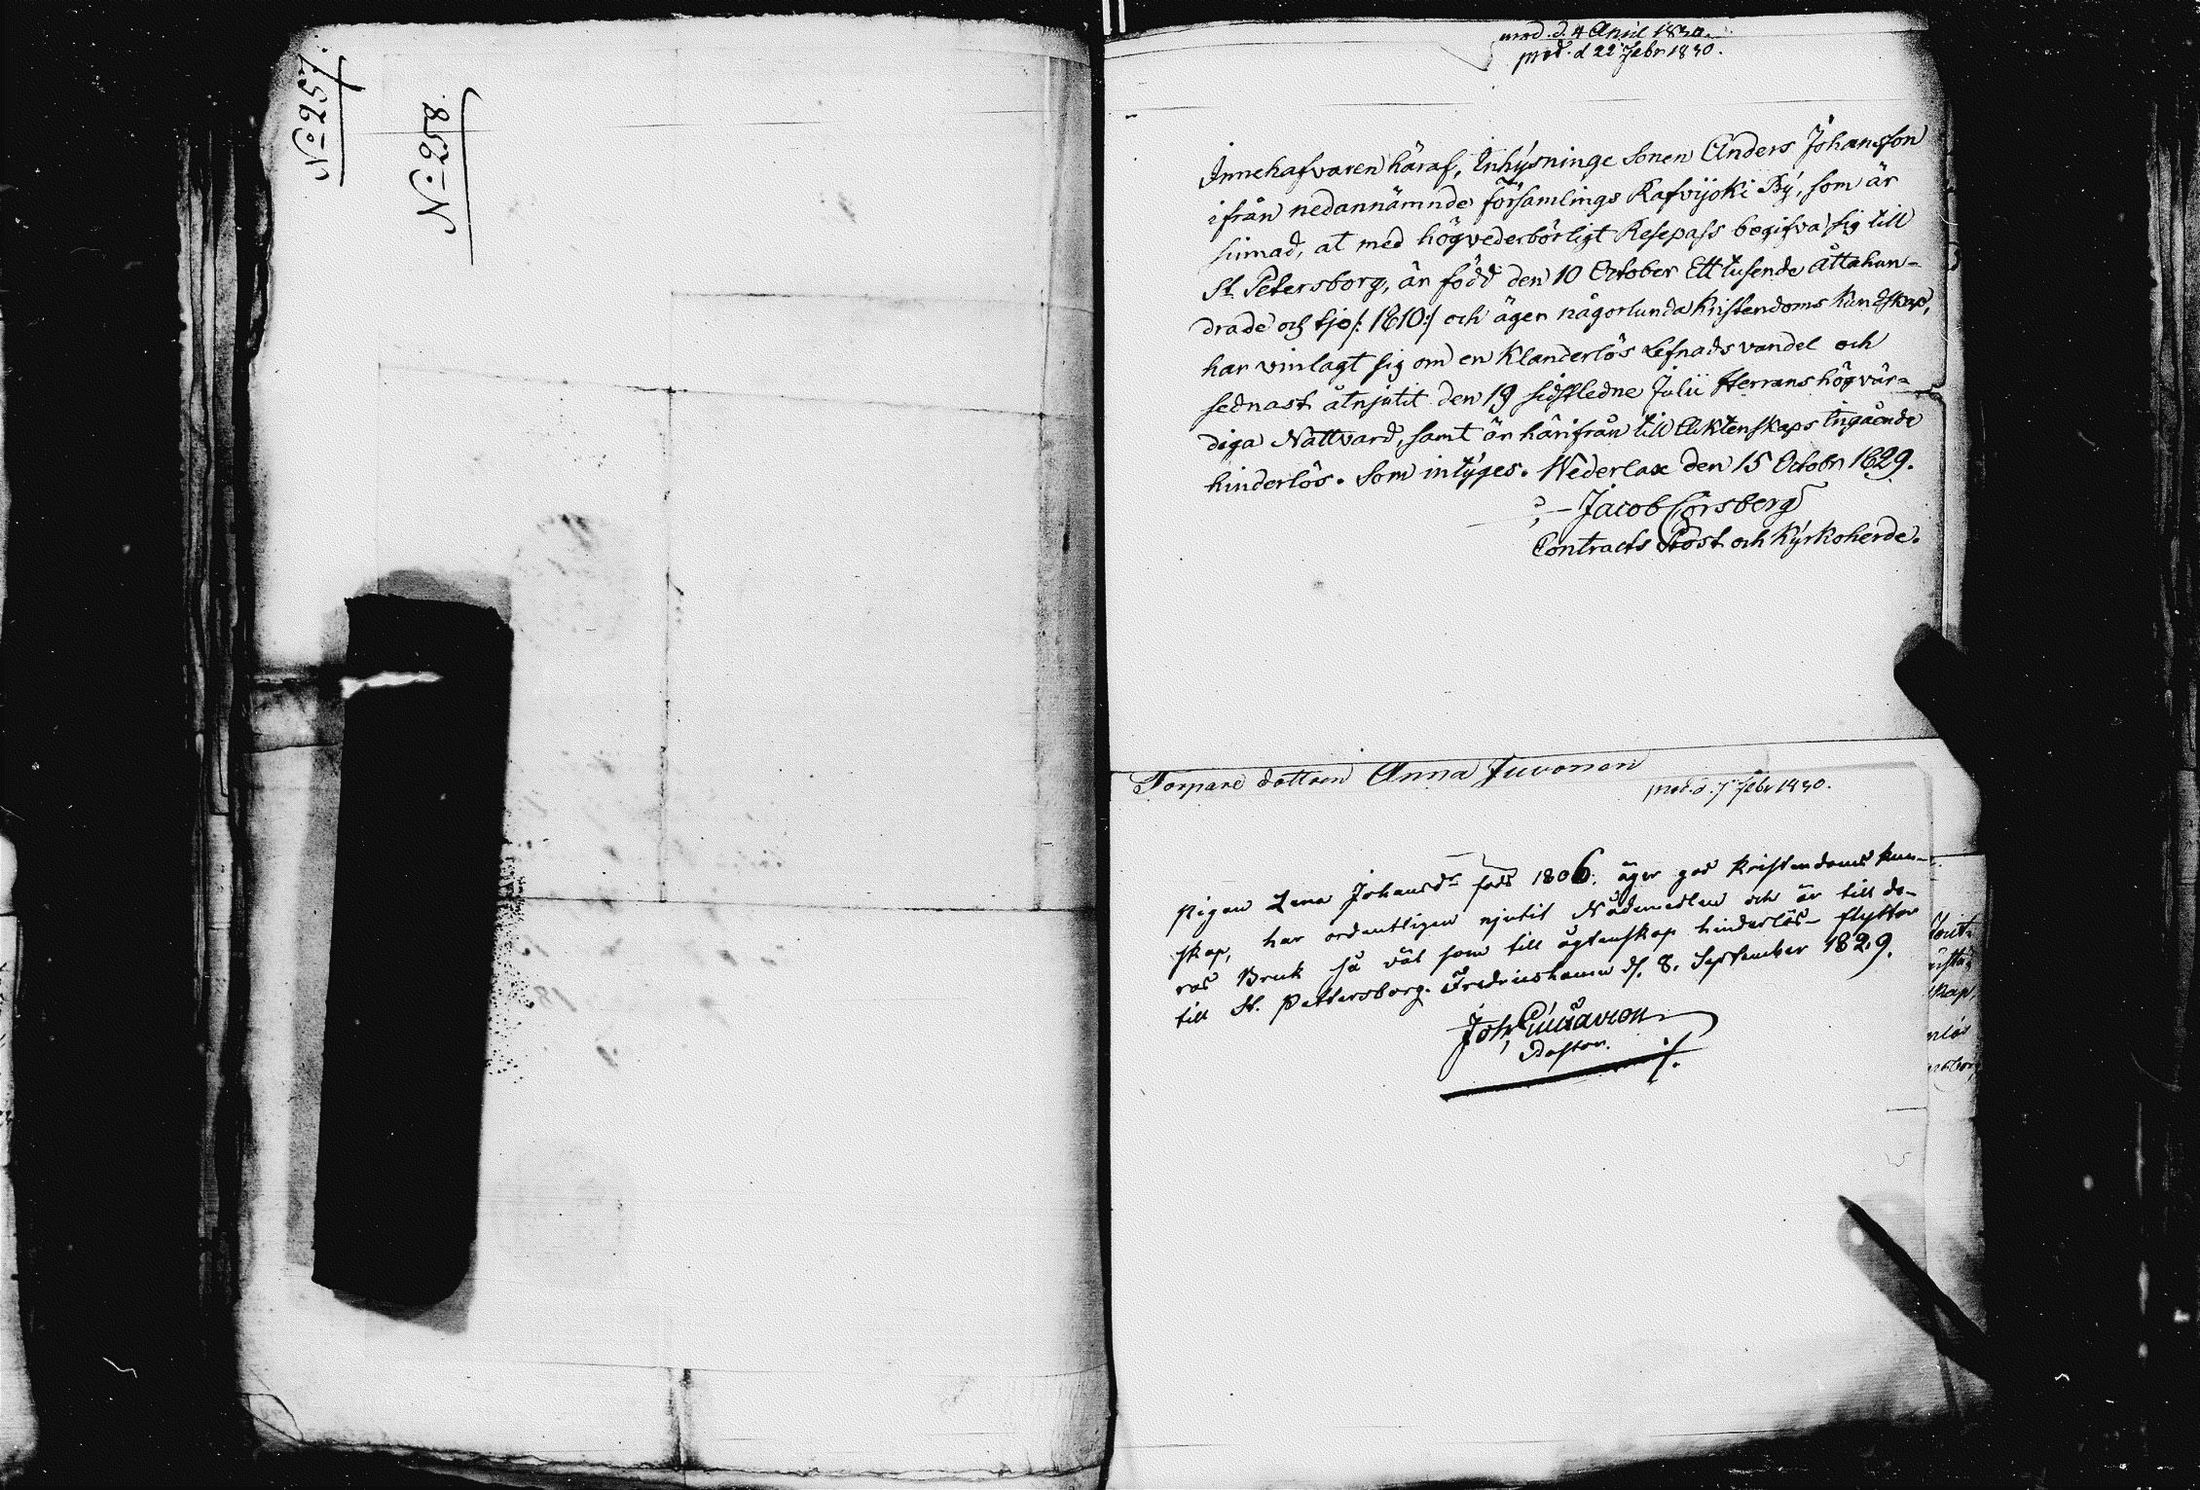 No 257.
No 258.
prod. d. 4 April 1830.
prod. d 22 Febr 1830.
Innehafvaren häraf, Inhysninge Sonen Anders Johansson
ifrån nedannämnde församlings Rafvijoki By, som är
sinnad, at med högvederbörligt Resepass begifva sig till
St Petersborg, är född den 10 October Ett tusende åttahun-
drade och tjo /: 1810:/ och äger någorlunda kristendoms kundskap,
har vinlagt sig om en klanderlös Lefnads vandel och
sednast åtnjutit den 19 sidstledne Julii Herrans högvär-
diga Nattvard, samt är härifrån till Äktenskaps ingående
hinderlös. Som intyges. Wederlax den 15 Octobr 1829.
Jacob Forsberg
Contracts Prost och Kyrkoherde.
Torpare dottren Anna Juvonen
prod. d. 7 Febr 1830.
Pigan Lena Johansdr född 1806. äger god Kristendoms kun-
skap, har ordentligen njutit Nådemedlen och är till de-
ras Bruk så väl som till ägtenskap hinderlös – flyttar
till St. Pettersborg. Fredricshamn d. 8. September 1829.
Joh
Pastor.